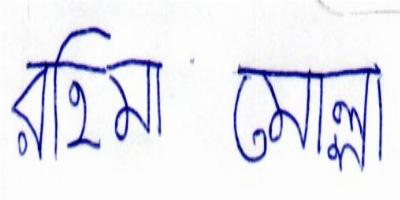 রহিমা মোল্লা